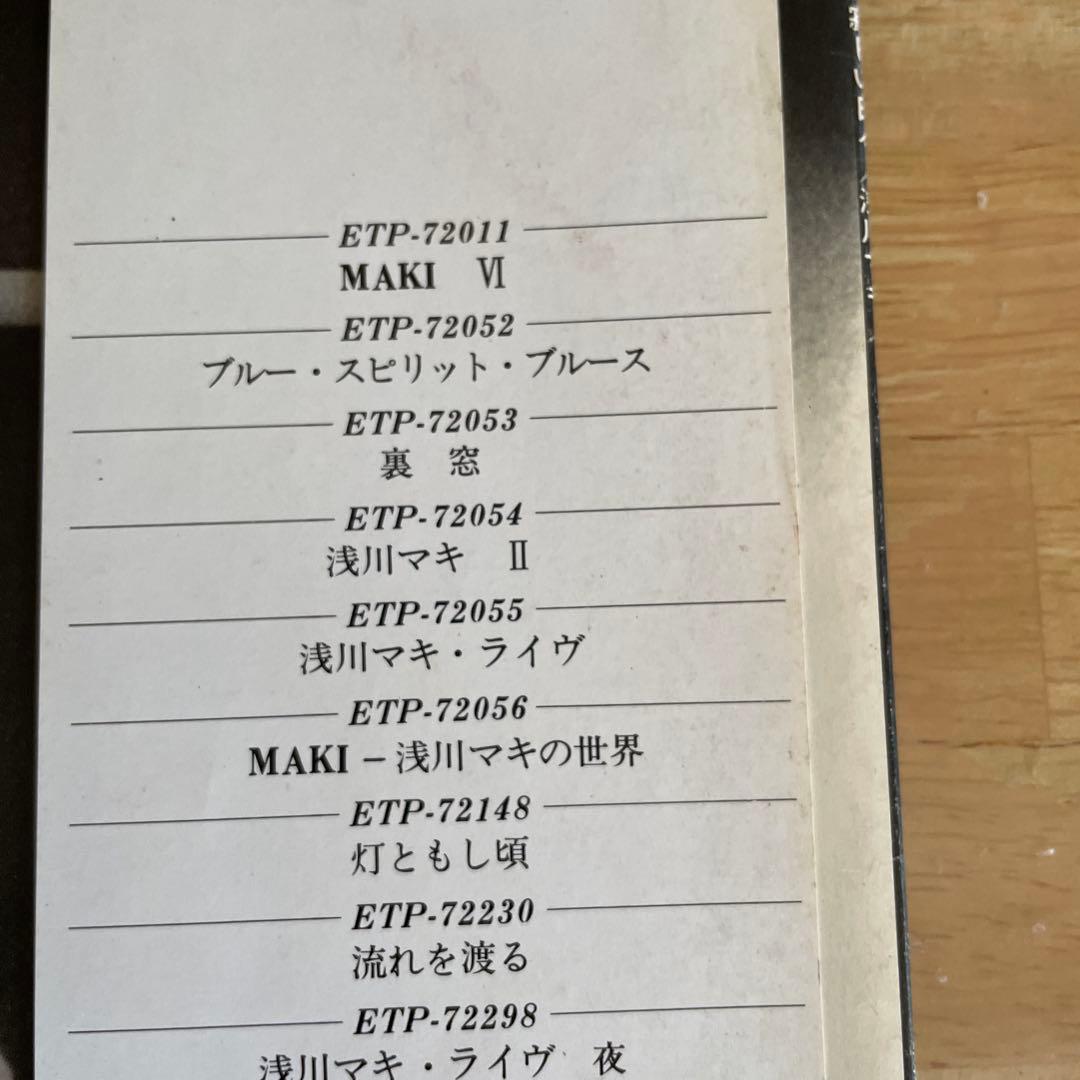 ETP-72011
MAKI Ⅵ
ETP-72052
ブルー・スピリット・ブルース
ETP-72053
裏 窓
ETP-72054
浅川マキ Ⅱ
ETP-72055
浅川マキ・ライヴ
ETP-72056
MAKI – 浅川マキの世界
ETP-72148
灯ともし頃
ETP-72230
流れを渡る
ETP-72298
浅川マキ・ライヴ 夜